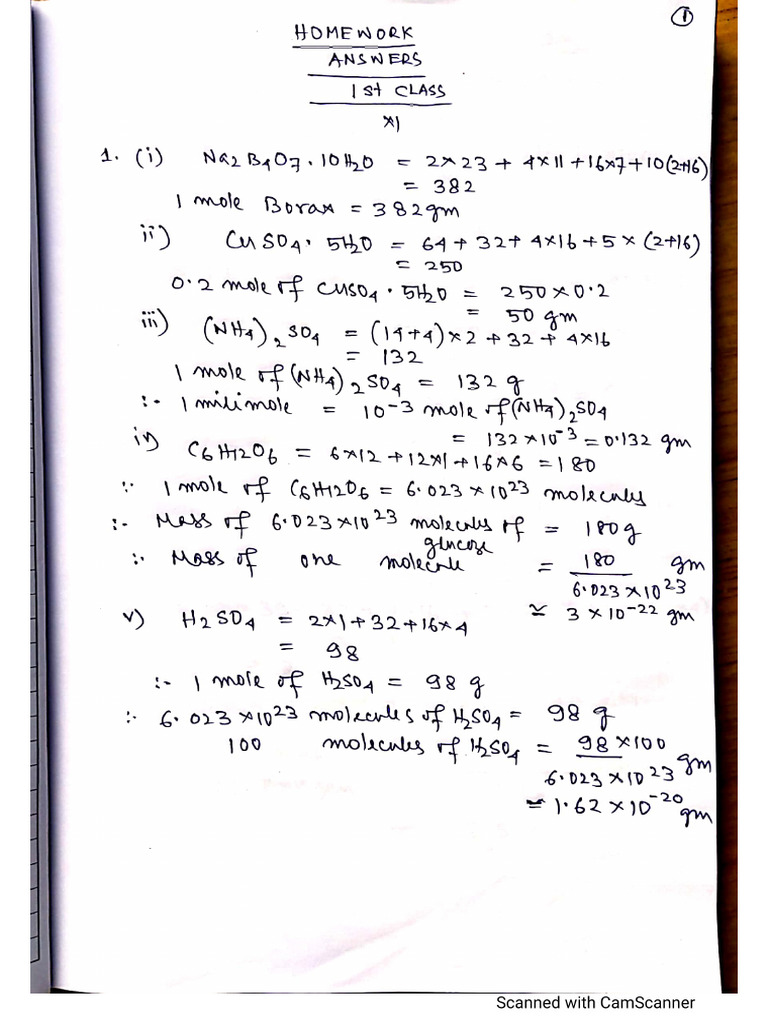 ①
HOMEWORK
ANSWERS
1st CLASS
XI
1. (i) Na2B4O7·10H2O = 2×23 + 4×11 + 16×7 + 10(2+16)
= 382
1 mole Borax = 382gm
ii) CuSO4· 5H2O = 64 + 32 + 4×16 + 5 × (2+16)
= 250
0.2 mole of CuSO4· 5H2O = 250 × 0.2
= 50 gm
iii) (NH4)2SO4 = (14+4)×2 + 32 + 4×16
= 132
1 mole of (NH4)2SO4 = 132 g
:- 1 milimole = 10-3 mole of (NH4)2SO4
= 132 ×10-3 = 0.132 gm
iv) C6H12O6 = 6×12 + 12×1 + 16×6 = 180
∵ 1 mole of C6H12O6 = 6.023 × 1023 molecules
:- Mass of 6.023×1023 molecules of glucose = 180g
∵ Mass of one molecule = 180 / 6.023 × 1023 gm
≃ 3 × 10-22 gm
v) H2SO4 = 2×1 + 32 + 16×4
= 98
:- 1 mole of H2SO4 = 98 g
∵ 6.023 ×1023 molecules of H2SO4 = 98 g
100 molecules of H2SO4 = 98 ×100 / 6.023 × 1023 gm
≃ 1.62 × 10-20 gm
Scanned with CamScanner